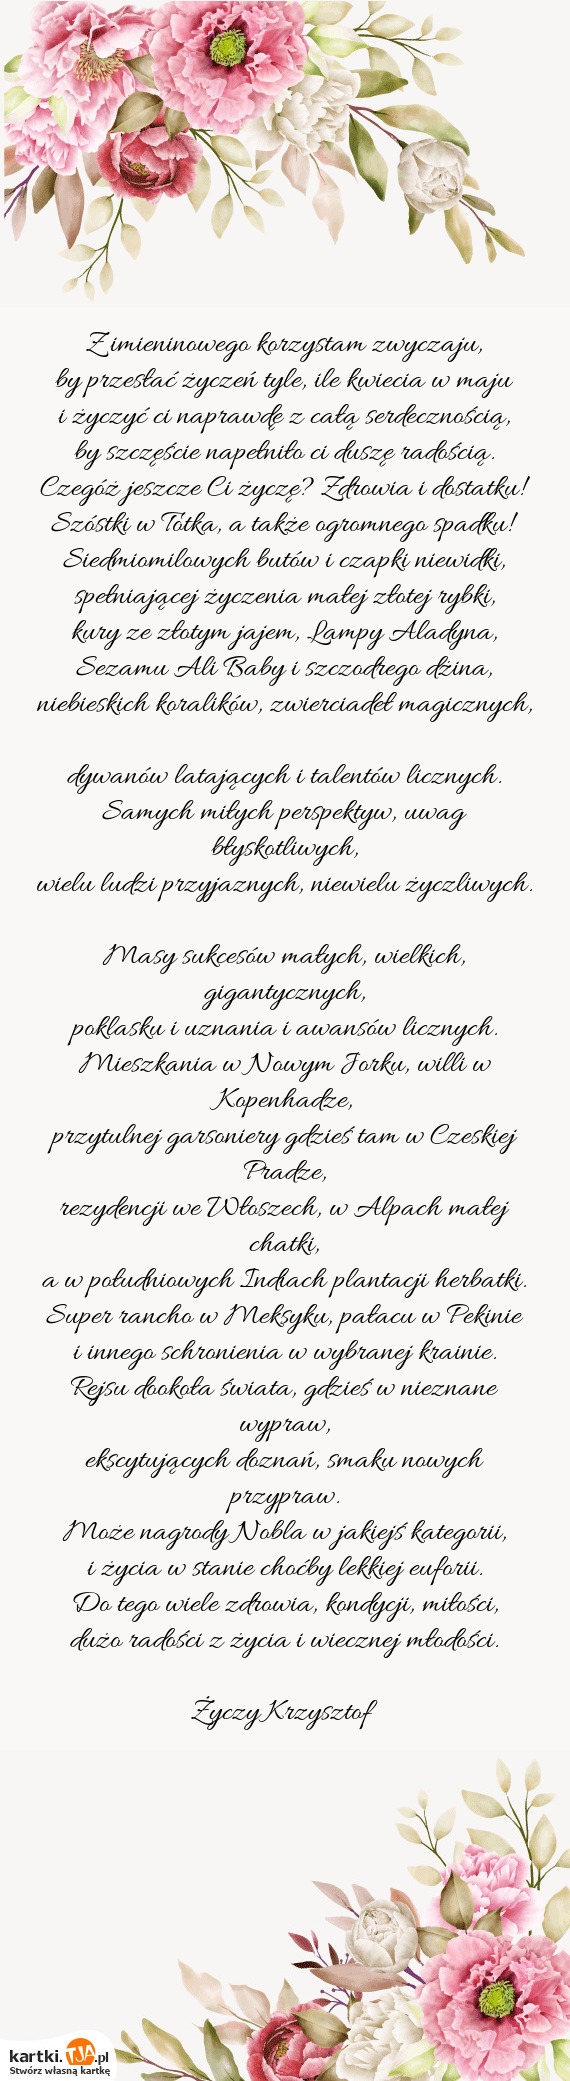 Z imieninowego korzystam zwyczaju,
by przesłać życzeń tyle, ile kwiecia w maju
i życzyć ci naprawdę z całą serdecznością,
by szczęście napełniło ci duszę radością.
Czegóż jeszcze Ci życzę? Zdrowia i dostatku!
Szóstki w Totka, a także ogromnego spadku!
Siedmiomilowych butów i czapki niewidki,
spełniającej życzenia małej złotej rybki,
kury ze złotym jajem, Lampy Aladyna,
Sezamu Ali Baby i szczodrego dżina,
niebieskich koralików, zwierciadeł magicznych,
dywanów latających i talentów licznych.
Samych miłych perspektyw, uwag
błyskotliwych,
wielu ludzi przyjaznych, niewielu życzliwych.
Masy sukcesów małych, wielkich,
gigantycznych,
poklasku i uznania i awansów licznych.
Mieszkania w Nowym Jorku, willi w
Kopenhadze,
przytulnej garsoniery gdzieś tam w Czeskiej
Pradze,
rezydencji we Włoszech, w Alpach małej
chatki,
a w południowych Indiach plantacji herbatki.
Super rancho w Meksyku, pałacu w Pekinie
i innego schronienia w wybranej krainie.
Rejsu dookoła świata, gdzieś w nieznane
wypraw,
ekscytujących doznań, smaku nowych
przypraw.
Może nagrody Nobla w jakiejś kategorii,
i życia w stanie choćby lekkiej euforii.
Do tego wiele zdrowia, kondycji, miłości,
dużo radości z życia i wiecznej młodości.
Życzy Krzysztof
kartki.TJA.pl
Stwórz własną kartkę